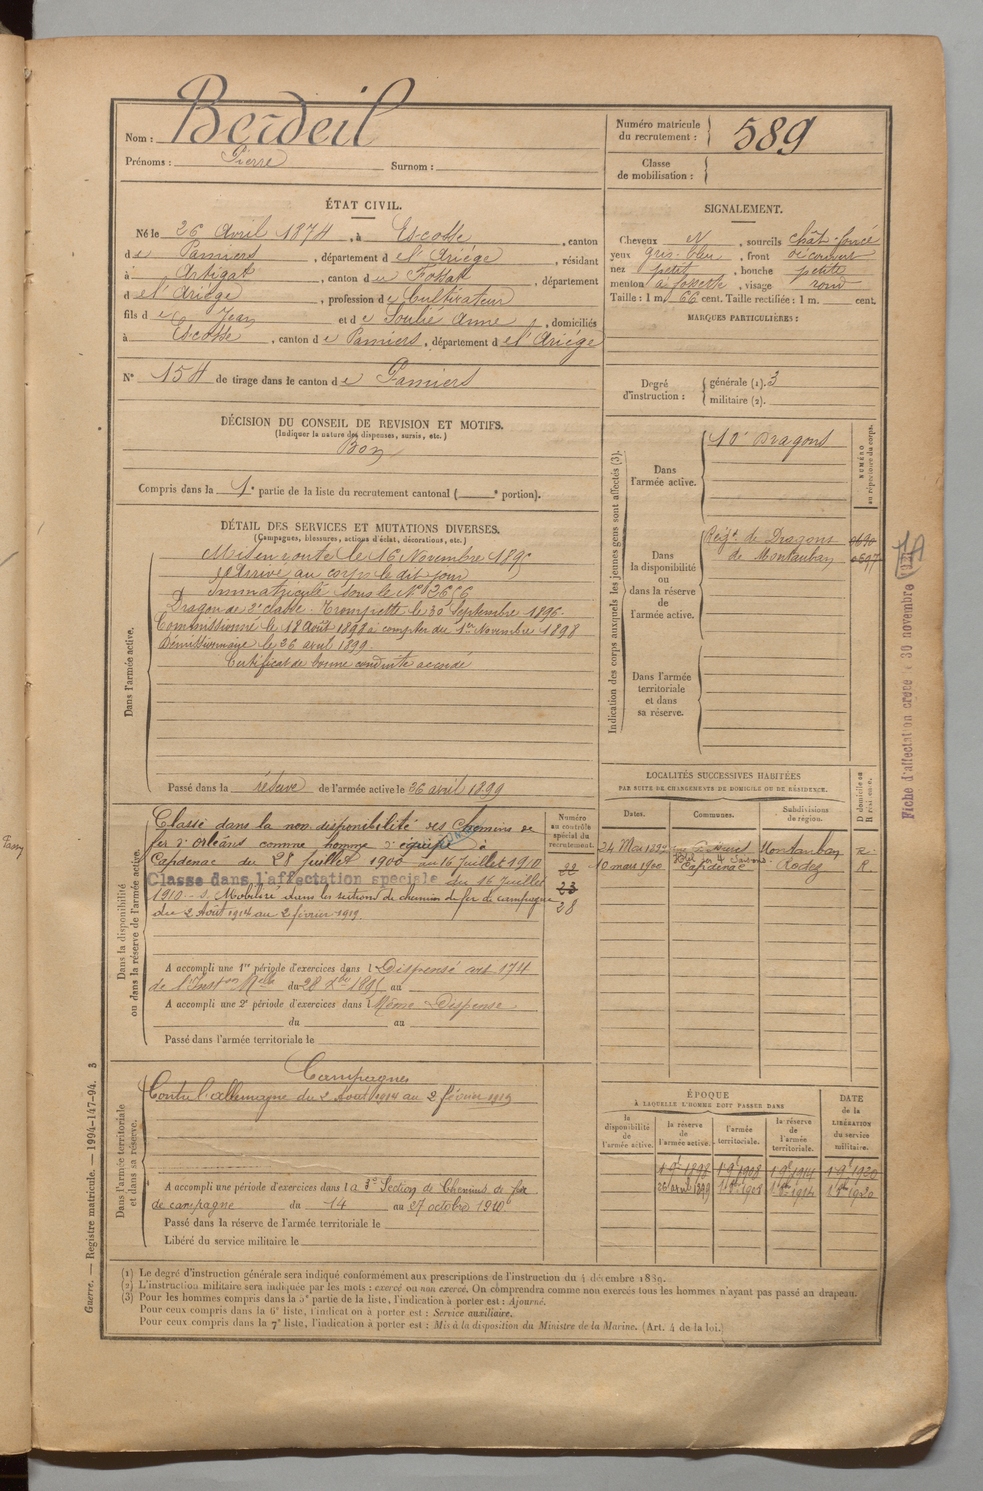 Nom : Berdeil
Prénoms : Pierre Surnom :
Numéro matricule du recrutement : 589
Classe de mobilisation :
ÉTAT CIVIL.
Né le 26 Avril 1874, à Escosse, canton
de Pamiers, département de l'Ariége, résidant
à Artigat, canton de Fossat, département
de l'Ariége, profession de Cultivateur
fils de Jean et de Soulié Anne, domiciliés
à Escosse, canton de Pamiers, département de l'Ariége
N° 154 de tirage dans le canton de Pamiers
SIGNALEMENT.
Cheveux N, sourcils chât-foncé
yeux gris-bleu, front découvert
nez petit, bouche petite
menton à fossette, visage rond
Taille : 1 m. 66 cent. Taille rectifiée : 1 m. cent.
MARQUES PARTICULIÈRES :
Degré d'instruction : générale (1). 3
militaire (2).
DÉCISION DU CONSEIL DE REVISION ET MOTIFS.
(Indiquer la nature des dispenses, sursis, etc.)
Bon
Compris dans la 1e partie de la liste du recrutement cantonal ( e portion).
DÉTAIL DES SERVICES ET MUTATIONS DIVERSES.
(Campagnes, blessures, actions d'éclat, décorations, etc.)
Dans l'armée active.
Mis en route le 16 Novembre 1895
Arrivé au corps le dit jour
Immatriculé sous le N°
Dragon de 2e classe. Trompette le 30 Septembre 1896.
Commissionné le 18 Août 1898 à compter du 1er Novembre 1898
Démissionnaire le 26 avril 1899.
Certificat de bonne conduite accordé
Passé dans la réserve de l'armée active le 26 avril 1899
Indication des corps auxquels les jeunes gens sont affectés (3).
NUMÉRO au répertoire du corps.
Dans l'armée active.
10e Dragons
Dans la disponibilité ou dans la réserve de l'armée active.
Régt de Dragons
de Montauban
Dans l'armée territoriale et dans sa réserve.
Fiche d'affectation créée 30 novembre
Dans la disponibilité ou dans la réserve de l'armée active.
Classé dans la non disponibilité des Chemins de
fer d'Orléans comme homme d'équipe à
Capdenac du 28 juillet 1900 au 16 juillet 1910
Classé dans l'affectation spéciale du 16 juillet
1910 Mobilisé dans les sections de chemins de fer de campagne
du 2 Août 1914 au 2 février 1919.
Numéro au contrôle spécial du recrutement.
22
23
28
A accompli une 1re période d'exercices dans l Dispensé art. 174
de l'Inston Melle du 28 Xbre 1895 au
A accompli une 2e période d'exercices dans l Même Dispense
du au
Passé dans l'armée territoriale le
LOCALITÉS SUCCESSIVES HABITÉES
PAR SUITE DE CHANGEMENTS DE DOMICILE OU DE RÉSIDENCE.
Dates. Communes. Subdivisions de région. D domicile ou R résidence.
24 Mai 1899 Montauban R.
Hôtel des 4 Saisons.
10 mars 1900 Capdenac Rodez R.
Dans l'armée territoriale et dans sa réserve.
Campagnes
Contre l'allemagne du 2 Août 1914 au 2 février 1919
A accompli une période d'exercices dans la 3e Section de Chemins de fer
de campagne du 14 au 27 octobre 1910
Passé dans la réserve de l'armée territoriale le
Libéré du service militaire le
ÉPOQUE
À LAQUELLE L'HOMME DOIT PASSER DANS
la disponibilité de l'armée active. la réserve de l'armée active. l'armée territoriale. la réserve de l'armée territoriale. DATE de la LIBÉRATION du service militaire.
1 9e 1898 1 9e 1908 1 9e 1914 1 9e 1920
26 avril 1899
(1) Le degré d'instruction générale sera indiqué conformément aux prescriptions de l'instruction du 4 décembre 1889.
(2) L'instruction militaire sera indiquée par les mots : exercé ou non exercé. On comprendra comme non exercés tous les hommes n'ayant pas passé au drapeau.
(3) Pour les hommes compris dans la 5e partie de la liste, l'indication à porter est : Ajourné.
Pour ceux compris dans la 6e liste, l'indication à porter est : Service auxiliaire.
Pour ceux compris dans la 7e liste, l'indication à porter est : Mis à la disposition du Ministre de la Marine. (Art. 4 de la loi.)
Guerre. — Registre matricule. — 1994-147-94. 3